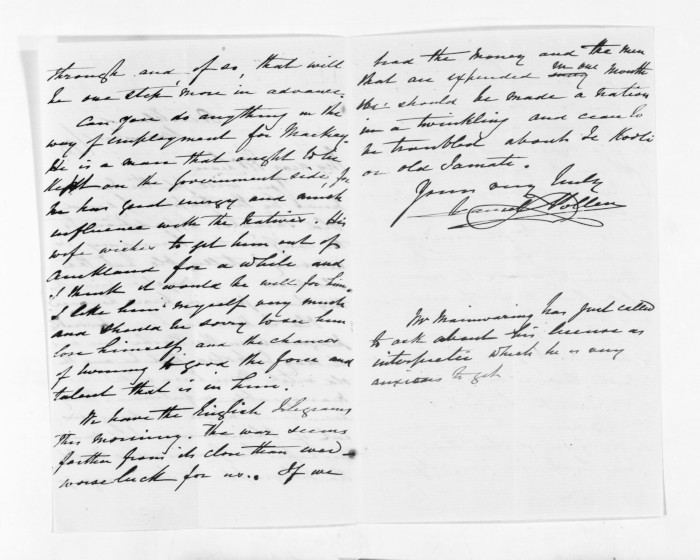 through and, if so, that will
be one step more in advance.
Can you do anything in the
way of employment for Mackay
He is a man that ought to be
Kept on the Government side, for
he has good energy and much
influence with the Natives. His
wife wishes to get him out of
Auckland for a while and
I think it would be well for him.
I like him myself very much
and should be sorry to see him
lose himself and the chance
of turning to good the force and
talent that is in him.
We have the English Telegrams
this morning. The war seems
farther from its close than ever
worse luck for us. If we
had the money and the men
that are expended in one month
we should be made a nation
in a twinkling and cease to
be troubled about Te Kooti
or old Tamati.
Yours very truly
Daniel Pollen
Mr Mainwaring has just called
to ask about his license as
interpreter which he is very
anxious to get.